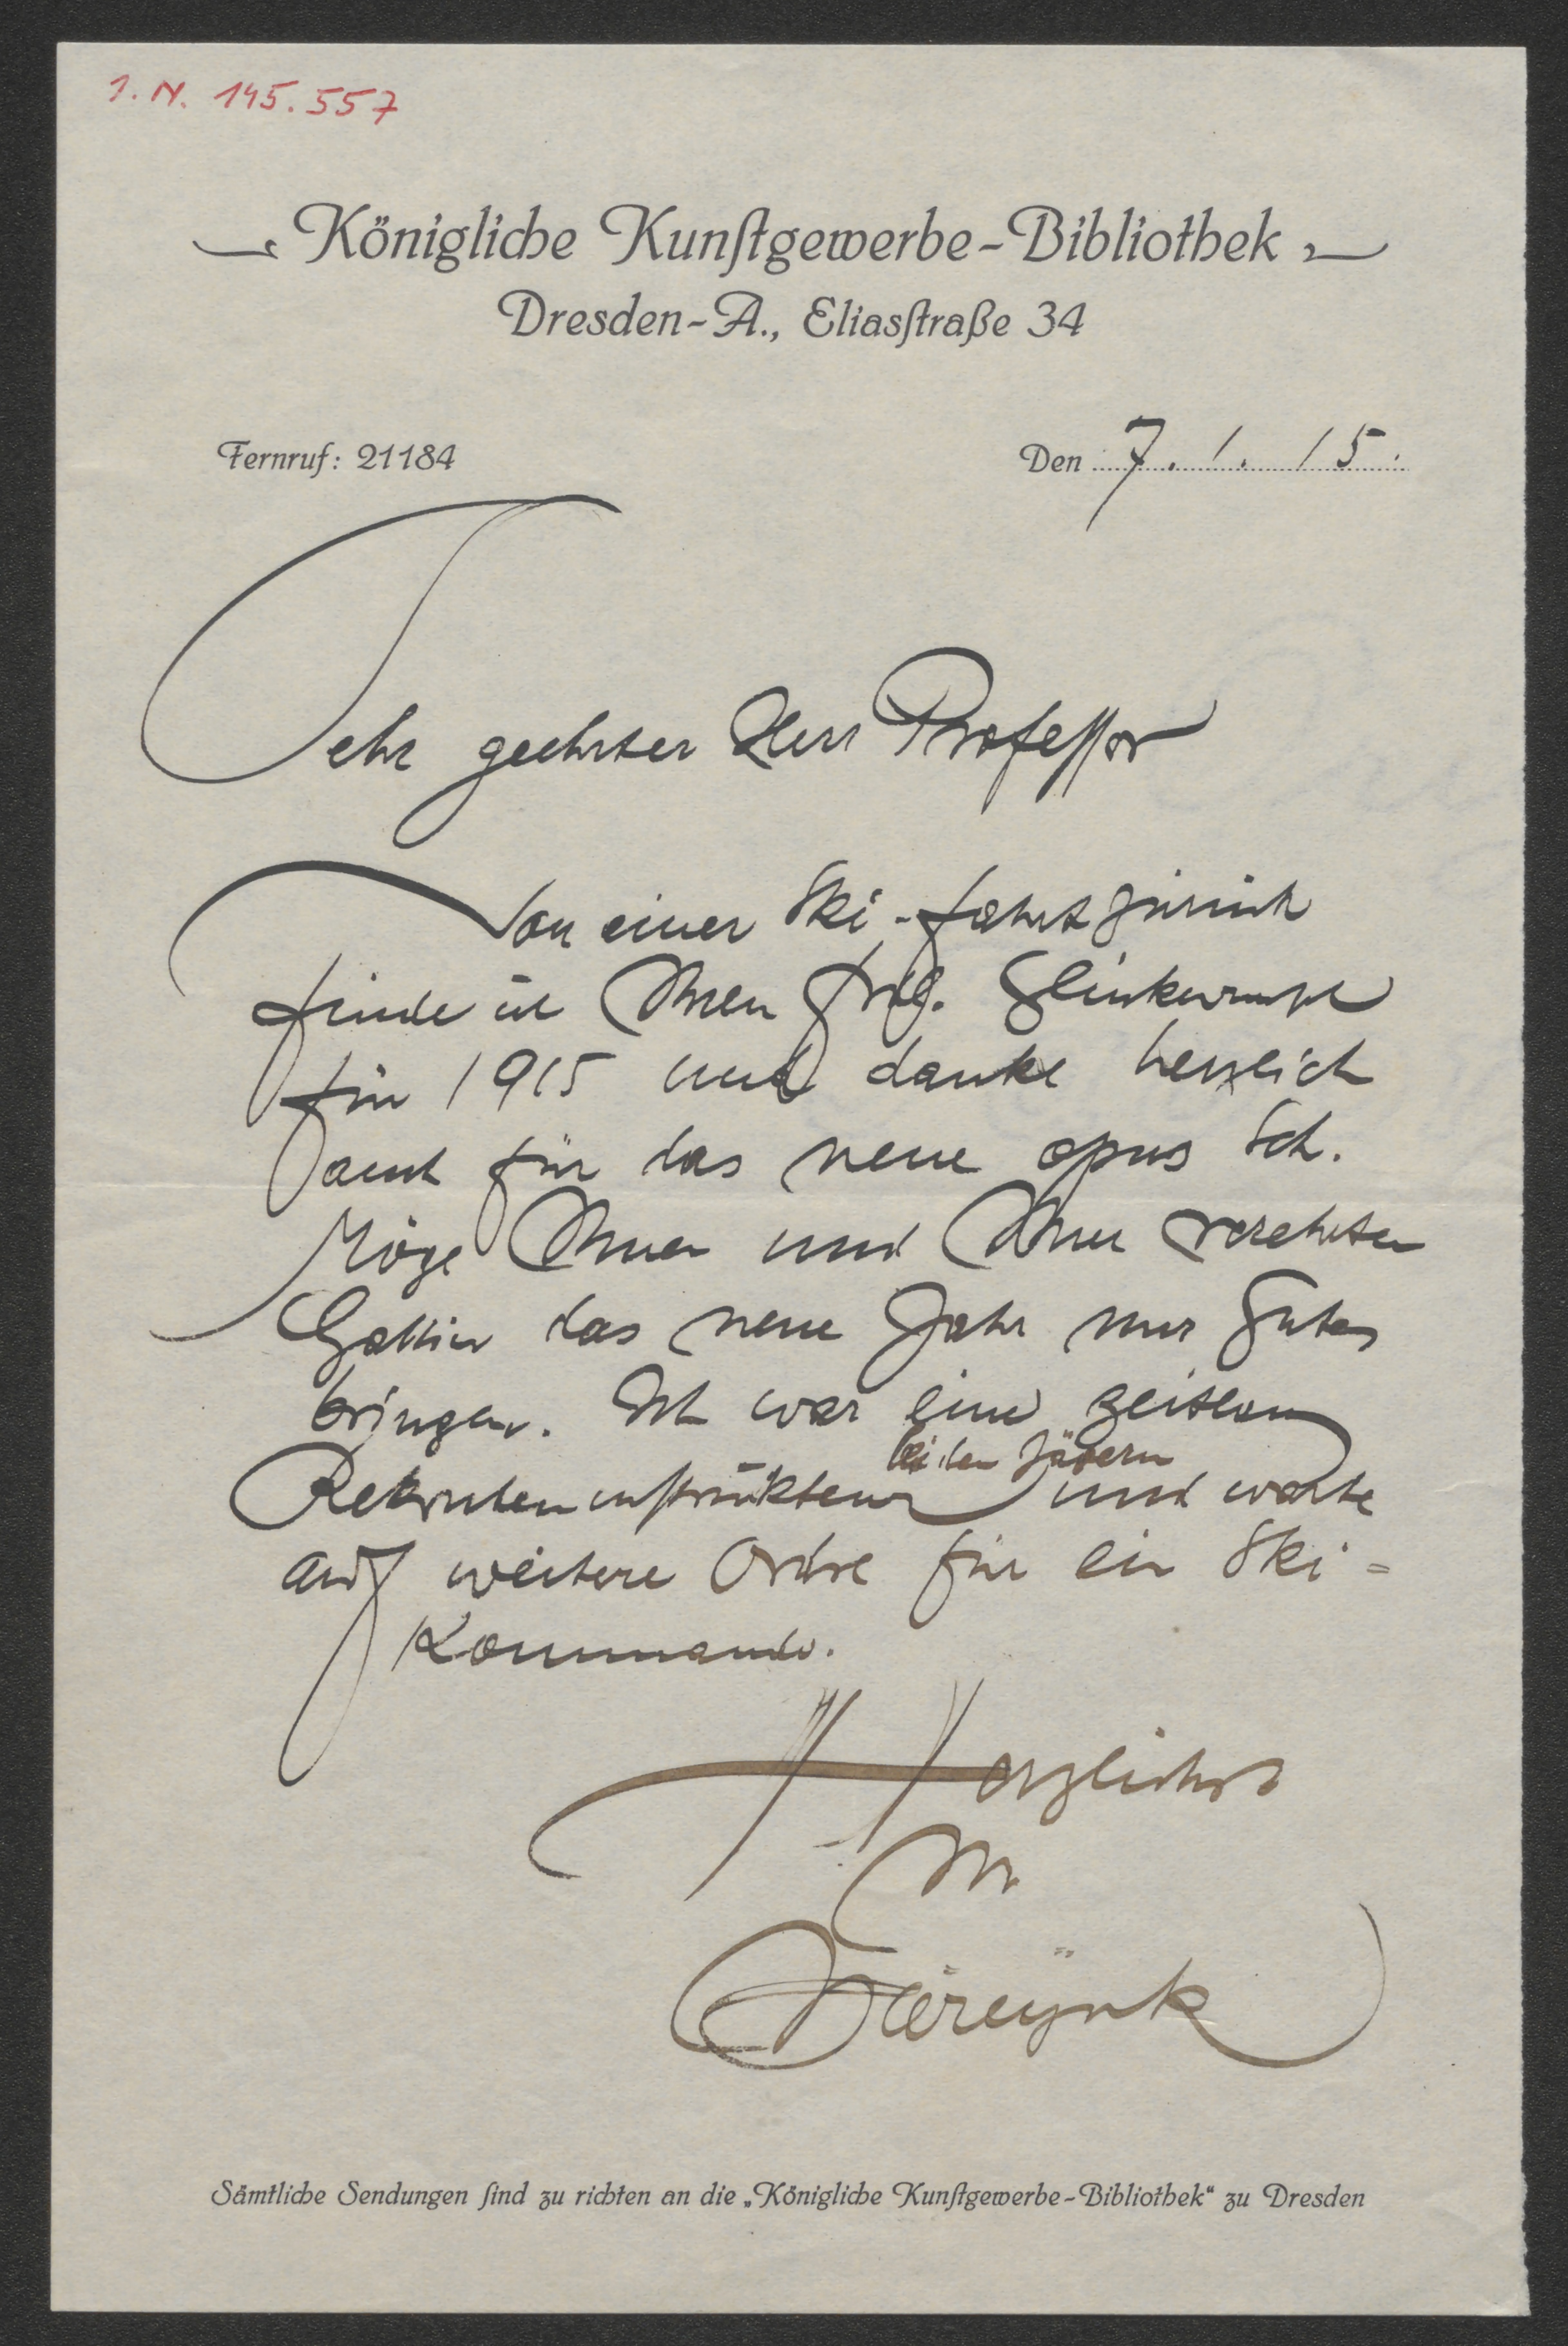 I. N. 145.557
Königliche Kunstgewerbe-Bibliothek
Dresden-A., Eliasstraße 34
Fernruf: 21184
Den 7. 1. 15.
Sehr geehrter Herr Professor
Von einer Ski-fahrt zurück
finde ich Ihren frdl. Glückwunsch
für 1915 und danke herzlich
auch für das neue opus Sch.
Möge Ihnen und Ihrer verehrten
Gattin das neue Jahr nur Gutes
bringen. Ich war eine zeitlang
bei den Jägern
Rekruteninstrukteur und warte
auf weitere Ordre für ein Ski=
Kommando.
Herzlichst
Ihr
Sämtliche Sendungen sind zu richten an die „Königliche Kunstgewerbe-Bibliothek“ zu Dresden